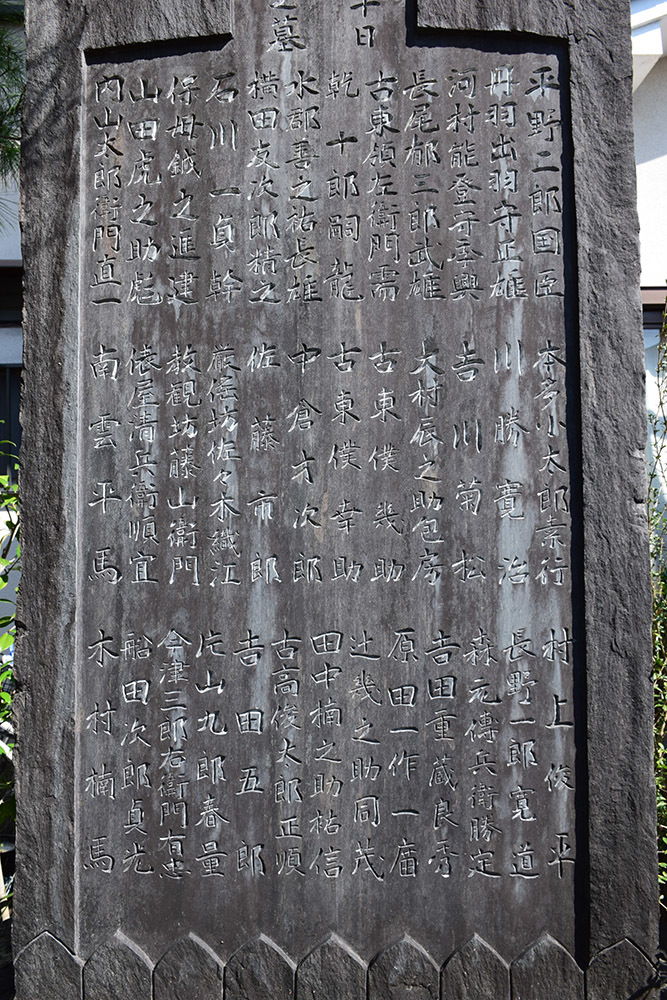 十日
之墓
平野二郎国臣
丹羽出羽守正雄
河村能登守季興
長尾郁三郎武雄
古東領左衛門需
乾十郎嗣龍
水郡善之祐長雄
横田友次郎精之
石川一貞幹
保母鉞之進建
山田虎之助彪
内山太郎衛門直一
本多小太郎素行
川勝寛治
吉川菊松
大村辰之助包房
古東僕幾助
古東僕幸助
中倉才次郎
佐藤市郎
坊佐々木織江
教観坊藤山衛門
俵屋清兵衛順宜
南雲平馬
村上俊平
長野一郎寛道
森元傳兵衛勝定
吉田重蔵良秀
原田一作一廣
辻幾之助同茂
田中楠之助祐信
古高俊太郎正順
吉田五郎
片山九郎春量
今津三郎右衛門有忠
船田次郎貞光
木村楠馬